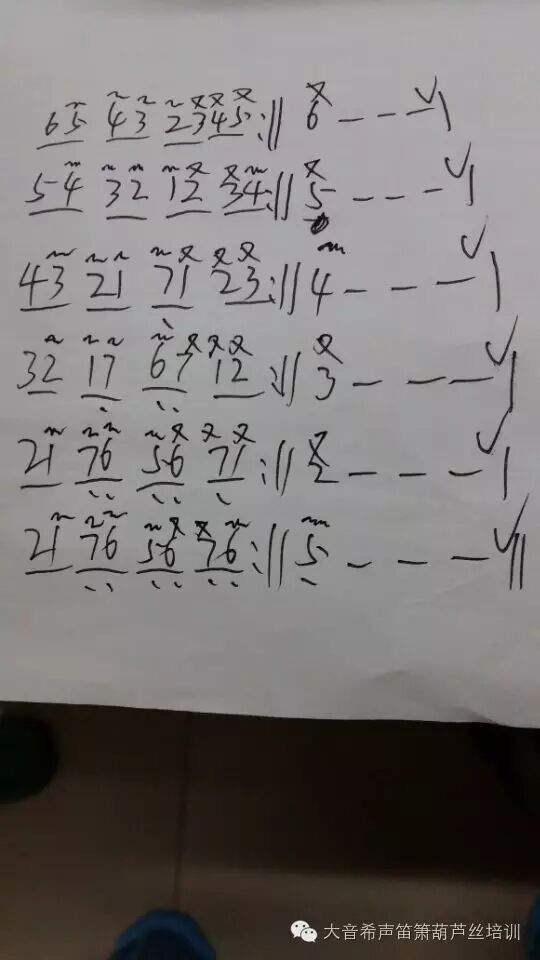 65 43 23 45 :|| 6 - - - V |
54 32 12 34 :|| 5 - - - V |
43 21 71 23 :|| 4 - - - V |
32 17 67 12 :|| 3 - - - V |
21 76 56 71 :|| 2 - - - V |
21 76 56 76 :|| 5 - - - V ||
大音希声笛箫葫芦丝培训